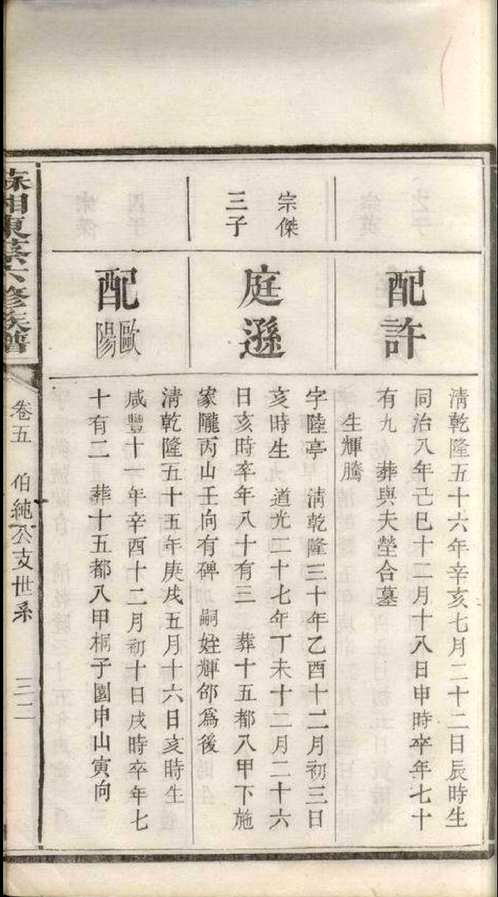 配許
清乾隆五十六年辛亥七月二十二日辰時生
同治八年己巳十二月十八日申時卒年七十
有九　葬與夫塋合墓
生輝騰
宗傑
三子
庭遜
字陸亭　清乾隆三十年乙酉十二月初三日
亥時生　道光二十七年丁未十二月二十六
日亥時卒年八十有三　葬十五都八甲下施
家隴丙山壬向有碑　嗣姪輝郃爲後
配歐陽
清乾隆五十五年庚戌五月十六日亥時生
咸豐十一年辛酉十二月初十日戌時卒年七
十有二　葬十五都八甲桐子園申山寅向
湘東蔡六修族譜
卷五　伯純公支世系　三二